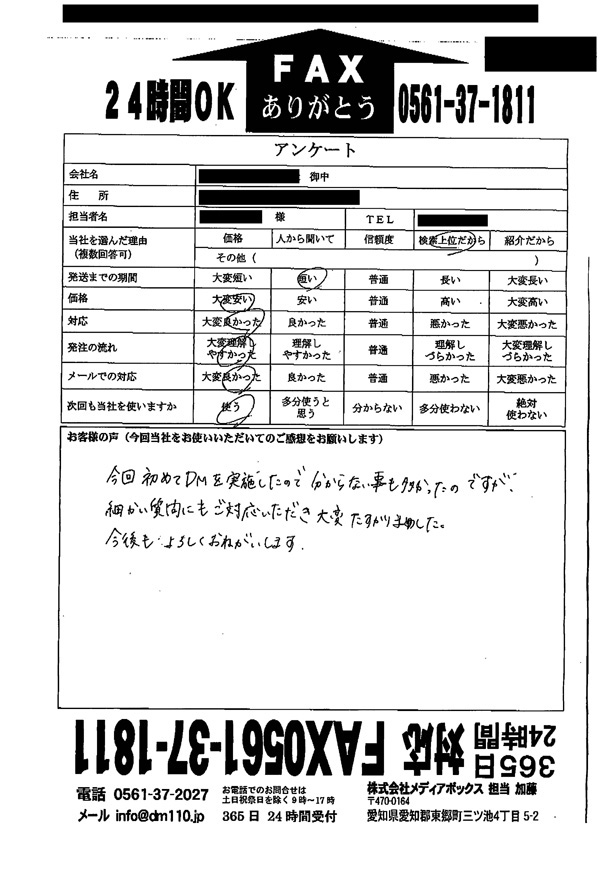 FAX
ありがとう
24時間OK
0561-37-1811
アンケート
会社名 御中
住 所
担当者名 様 TEL
当社を選んだ理由
(複数回答可)
価格 人から聞いて 信頼度 検索上位だから 紹介だから
その他 ( )
発送までの期間 大変短い 短い 普通 長い 大変長い
価格 大変安い 安い 普通 高い 大変高い
対応 大変良かった 良かった 普通 悪かった 大変悪かった
発注の流れ 大変理解し
やすかった 理解し
やすかった 普通 理解し
づらかった 大変理解し
づらかった
メールでの対応 大変良かった 良かった 普通 悪かった 大変悪かった
次回も当社を使いますか 使う 多分使うと
思う 分からない 多分使わない 絶対
使わない
お客様の声(今回当社をお使いいただいてのご感想をお願いします)
今回初めてDMを実施したので分からない事も多かったのですが、
細かい質問にもご対応いただき大変たすかりました。
今後もよろしくおねがいします。
365日
24時間
対応 FAX0561-37-1811
電話 0561-37-2027
メール info@dm110.jp
お電話でのお問合せは
土日祝祭日を除く9時~17時
365日 24時間受付
株式会社メディアボックス 担当 加藤
〒470-0164
愛知県愛知郡東郷町三ツ池4丁目5-2